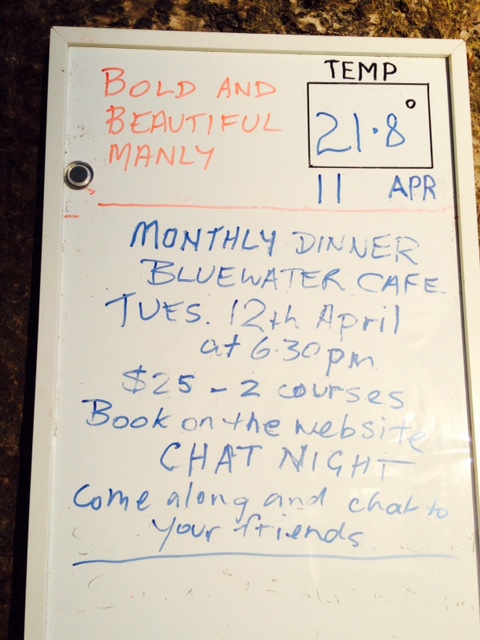 BOLD AND
BEAUTIFUL
MANLY
TEMP
21.8°
11 APR
MONTHLY DINNER
BLUEWATER CAFE
TUES. 12th April
at 6.30pm
$25 - 2 courses
Book on the website
CHAT NIGHT
Come along and chat to
your friends